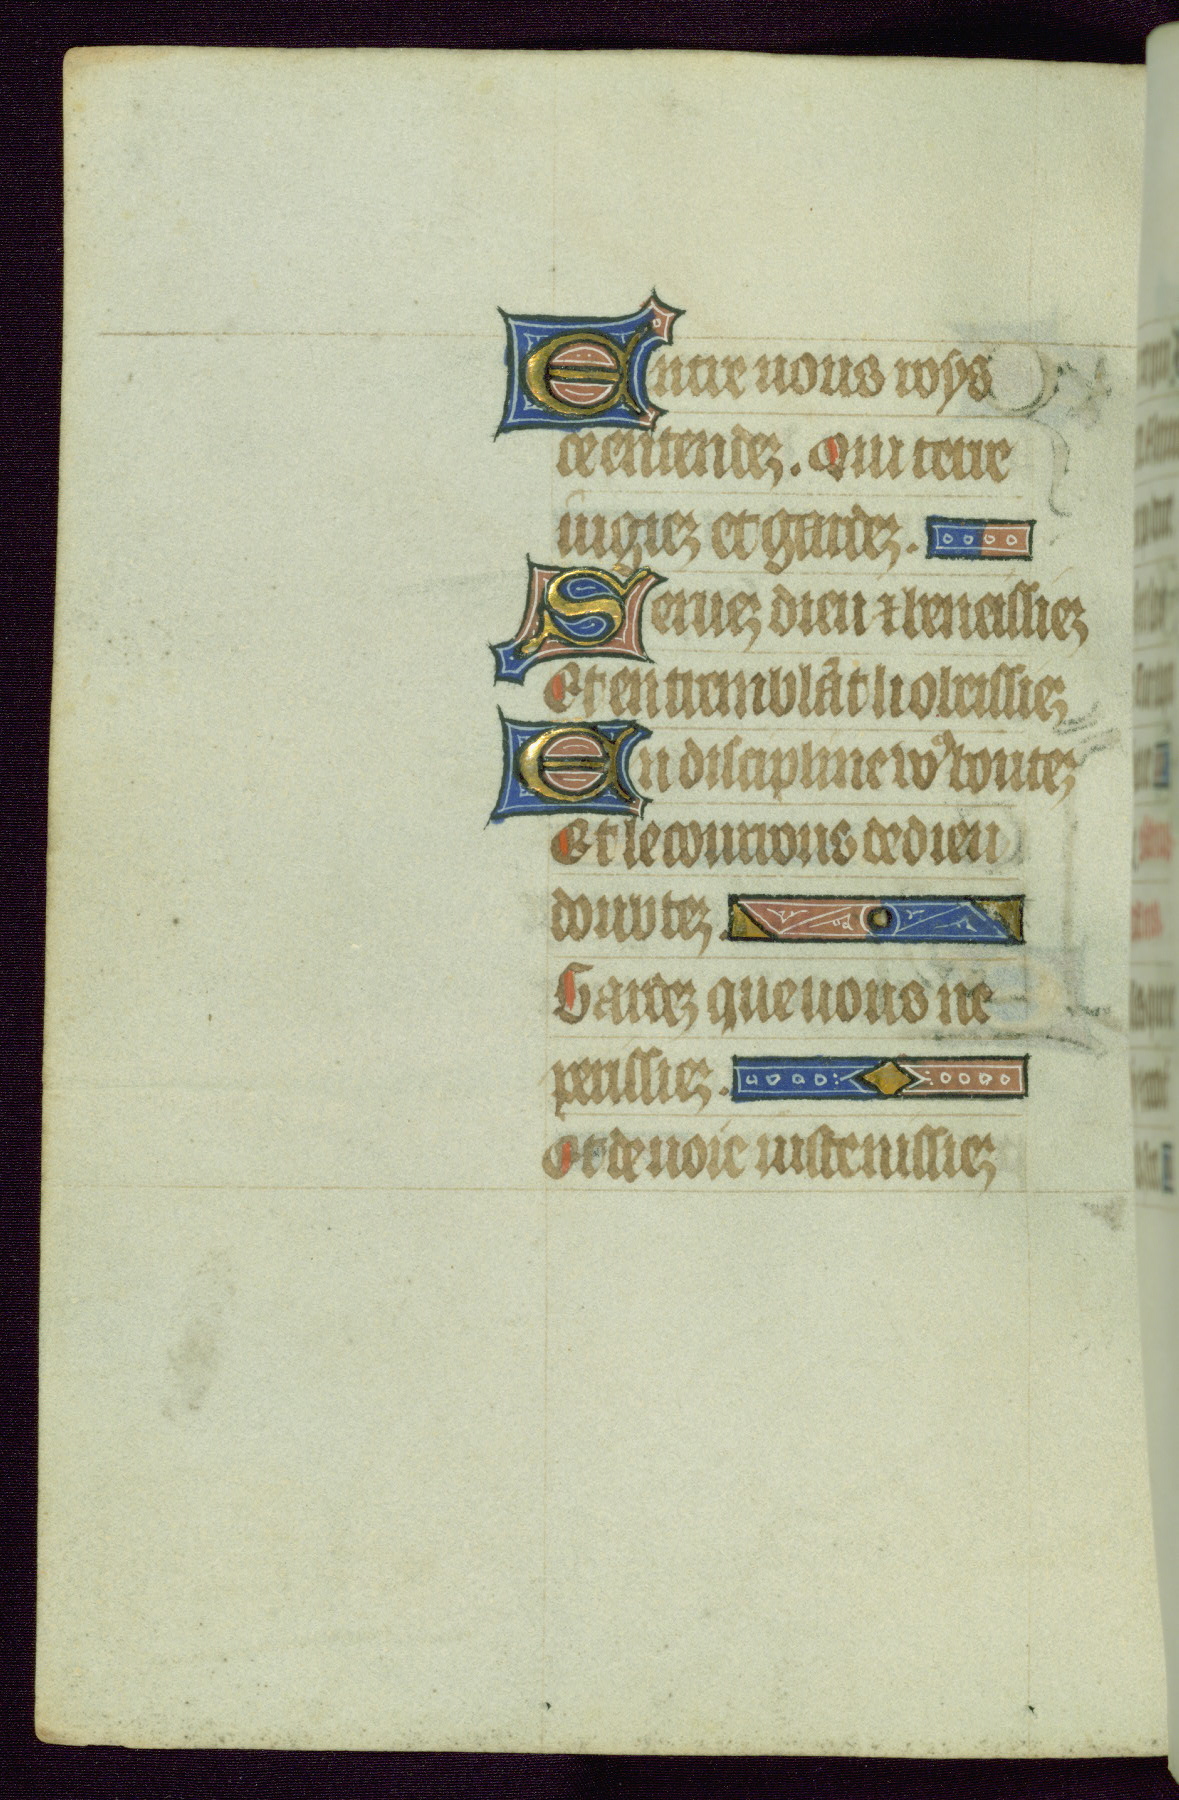 Entre uous roys
de entendez. Qui terre
iugiez et gardez.
Seruez dieu ⁊ beneissiez
Et en tremblāt li obeissiez
En discipline vo᷒ boutez
Et le courrous de dieu
doubtez.
Gardez que uous ne
perissiez.
Et de uoie iuste nissiez